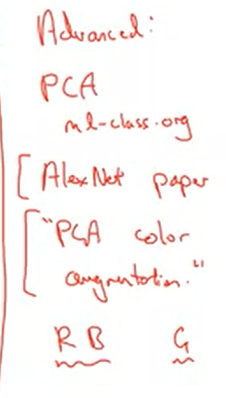 Advanced:
PCA
ml-class.org
[AlexNet paper
["PCA color
augmentation."
R B G